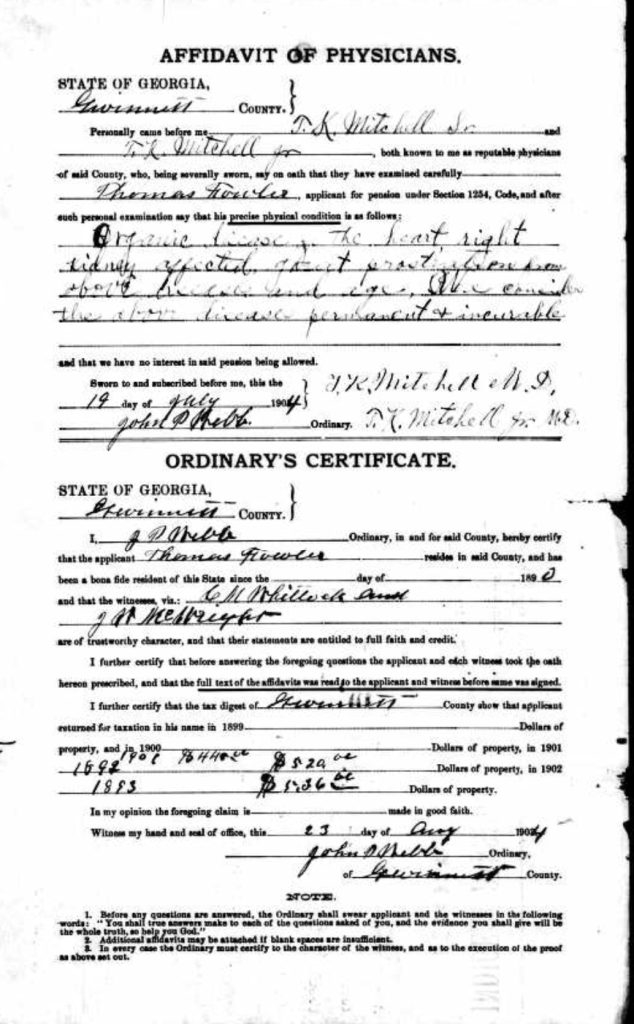 AFFIDAVIT OF PHYSICIANS.
STATE OF GEORGIA,
Gwinnett COUNTY. }
Personally came before me T. K. Mitchell Sr and
T. K. Mitchell jr, both known to me as reputable physicians
of said County, who, being severally sworn, say on oath that they have examined carefully
Thomas Fowler, applicant for pension under Section 1254, Code, and after
such personal examination say that his precise physical condition is as follows:
Organic disease of the heart, right
kidney affected, great prostration from
above disease and age, We consider
the above disease permanent & incurable
and that we have no interest in said pension being allowed.
Sworn to and subscribed before me, this the } T. K. Mitchell M. D,
19 day of July 1904
John P Webb Ordinary. T. K. Mitchell Jr. M.D.
ORDINARY'S CERTIFICATE.
STATE OF GEORGIA,
Gwinnett COUNTY. }
I, J P Webb Ordinary, in and for said County, hereby certify
that the applicant Thomas Fowler resides in said County, and has
been a bona fide resident of this State since the day of 1890
and that the witnesses, viz.: C M Whitlock and
J W McWright
are of trustworthy character, and that their statements are entitled to full faith and credit.
I further certify that before answering the foregoing questions the applicant and each witness took the oath
hereon prescribed, and that the full text of the affidavits was read to the applicant and witness before same was signed.
I further certify that the tax digest of Gwinnett County show that applicant
returned for taxation in his name in 1899 Dollars of
property, and in 1900 Dollars of property, in 1901
1892 1901 $440 00 $520 00 Dollars of property, in 1902
1893 $536 00 Dollars of property.
In my opinion the foregoing claim is made in good faith.
Witness my hand and seal of office, this 23 day of Aug 1904
John P Webb Ordinary,
of Gwinnett County.
NOTE.
1. Before any questions are answered, the Ordinary shall swear applicant and the witnesses in the following
words: "You shall true answers make to each of the questions asked of you, and the evidence you shall give will be
the whole truth, so help you God."
2. Additional affidavits may be attached if blank spaces are insufficient.
3. In every case the Ordinary must certify to the character of the witness, and as to the execution of the proof
as above set out.